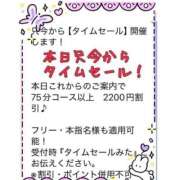 只今から【タイムセール】開催
します！
本日只今から
タイムセール！
本日これからのご案内で
75分コース以上　2200円割
引♪
フリー・本指名様も適用可
能！
受付時『タイムセールみた
お伝えください。
※割引・ポイント併用不可